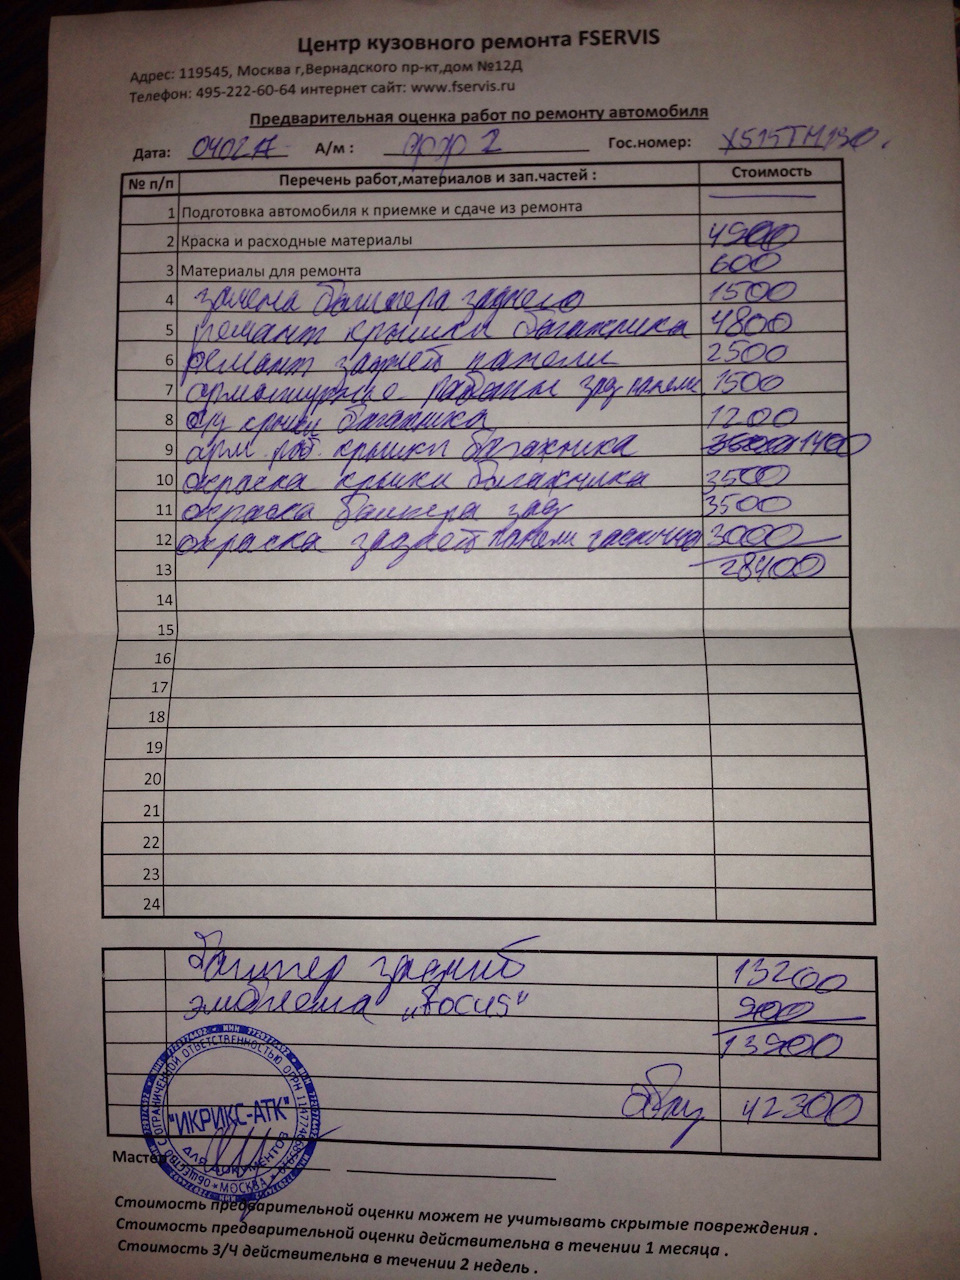 Центр кузовного ремонта FSERVIS
Адрес: 119545, Москва г,Вернадского пр-кт,дом №12Д
Телефон: 495-222-60-64 интернет сайт: www.fservis.ru
Предварительная оценка работ по ремонту автомобиля
Дата: 040217 А/м : Гос.номер: Х515ТМ190.
№ п/п Перечень работ,материалов и зап.частей : Стоимость
1 Подготовка автомобиля к приемке и сдаче из ремонта
2 Краска и расходные материалы 4900
3 Материалы для ремонта 600
4 замена бампера заднего 1500
5 ремонт крышки багажника 4800
6 ремонт задней панели 2500
7 арматурные работы зад панели 1500
8 с/у крышки багажника 1200
9 арм. раб. крышки багажника 1400
10 окраска крышки багажника 3500
11 окраска бампера зад 3500
12 окраска задней панели частично 3000
13 28400
14
15
16
17
18
19
20
21
22
23
24
бампер задний 13200
эмблема „Focus" 900
13900
42300
"ИКРИКС-АТК"
ДЛЯ ДОКУМЕНТОВ
МОСКВА
Мастер
Стоимость предварительной оценки может не учитывать скрытые повреждения .
Стоимость предварительной оценки действительна в течении 1 месяца .
Стоимость З/Ч действительна в течении 2 недель .